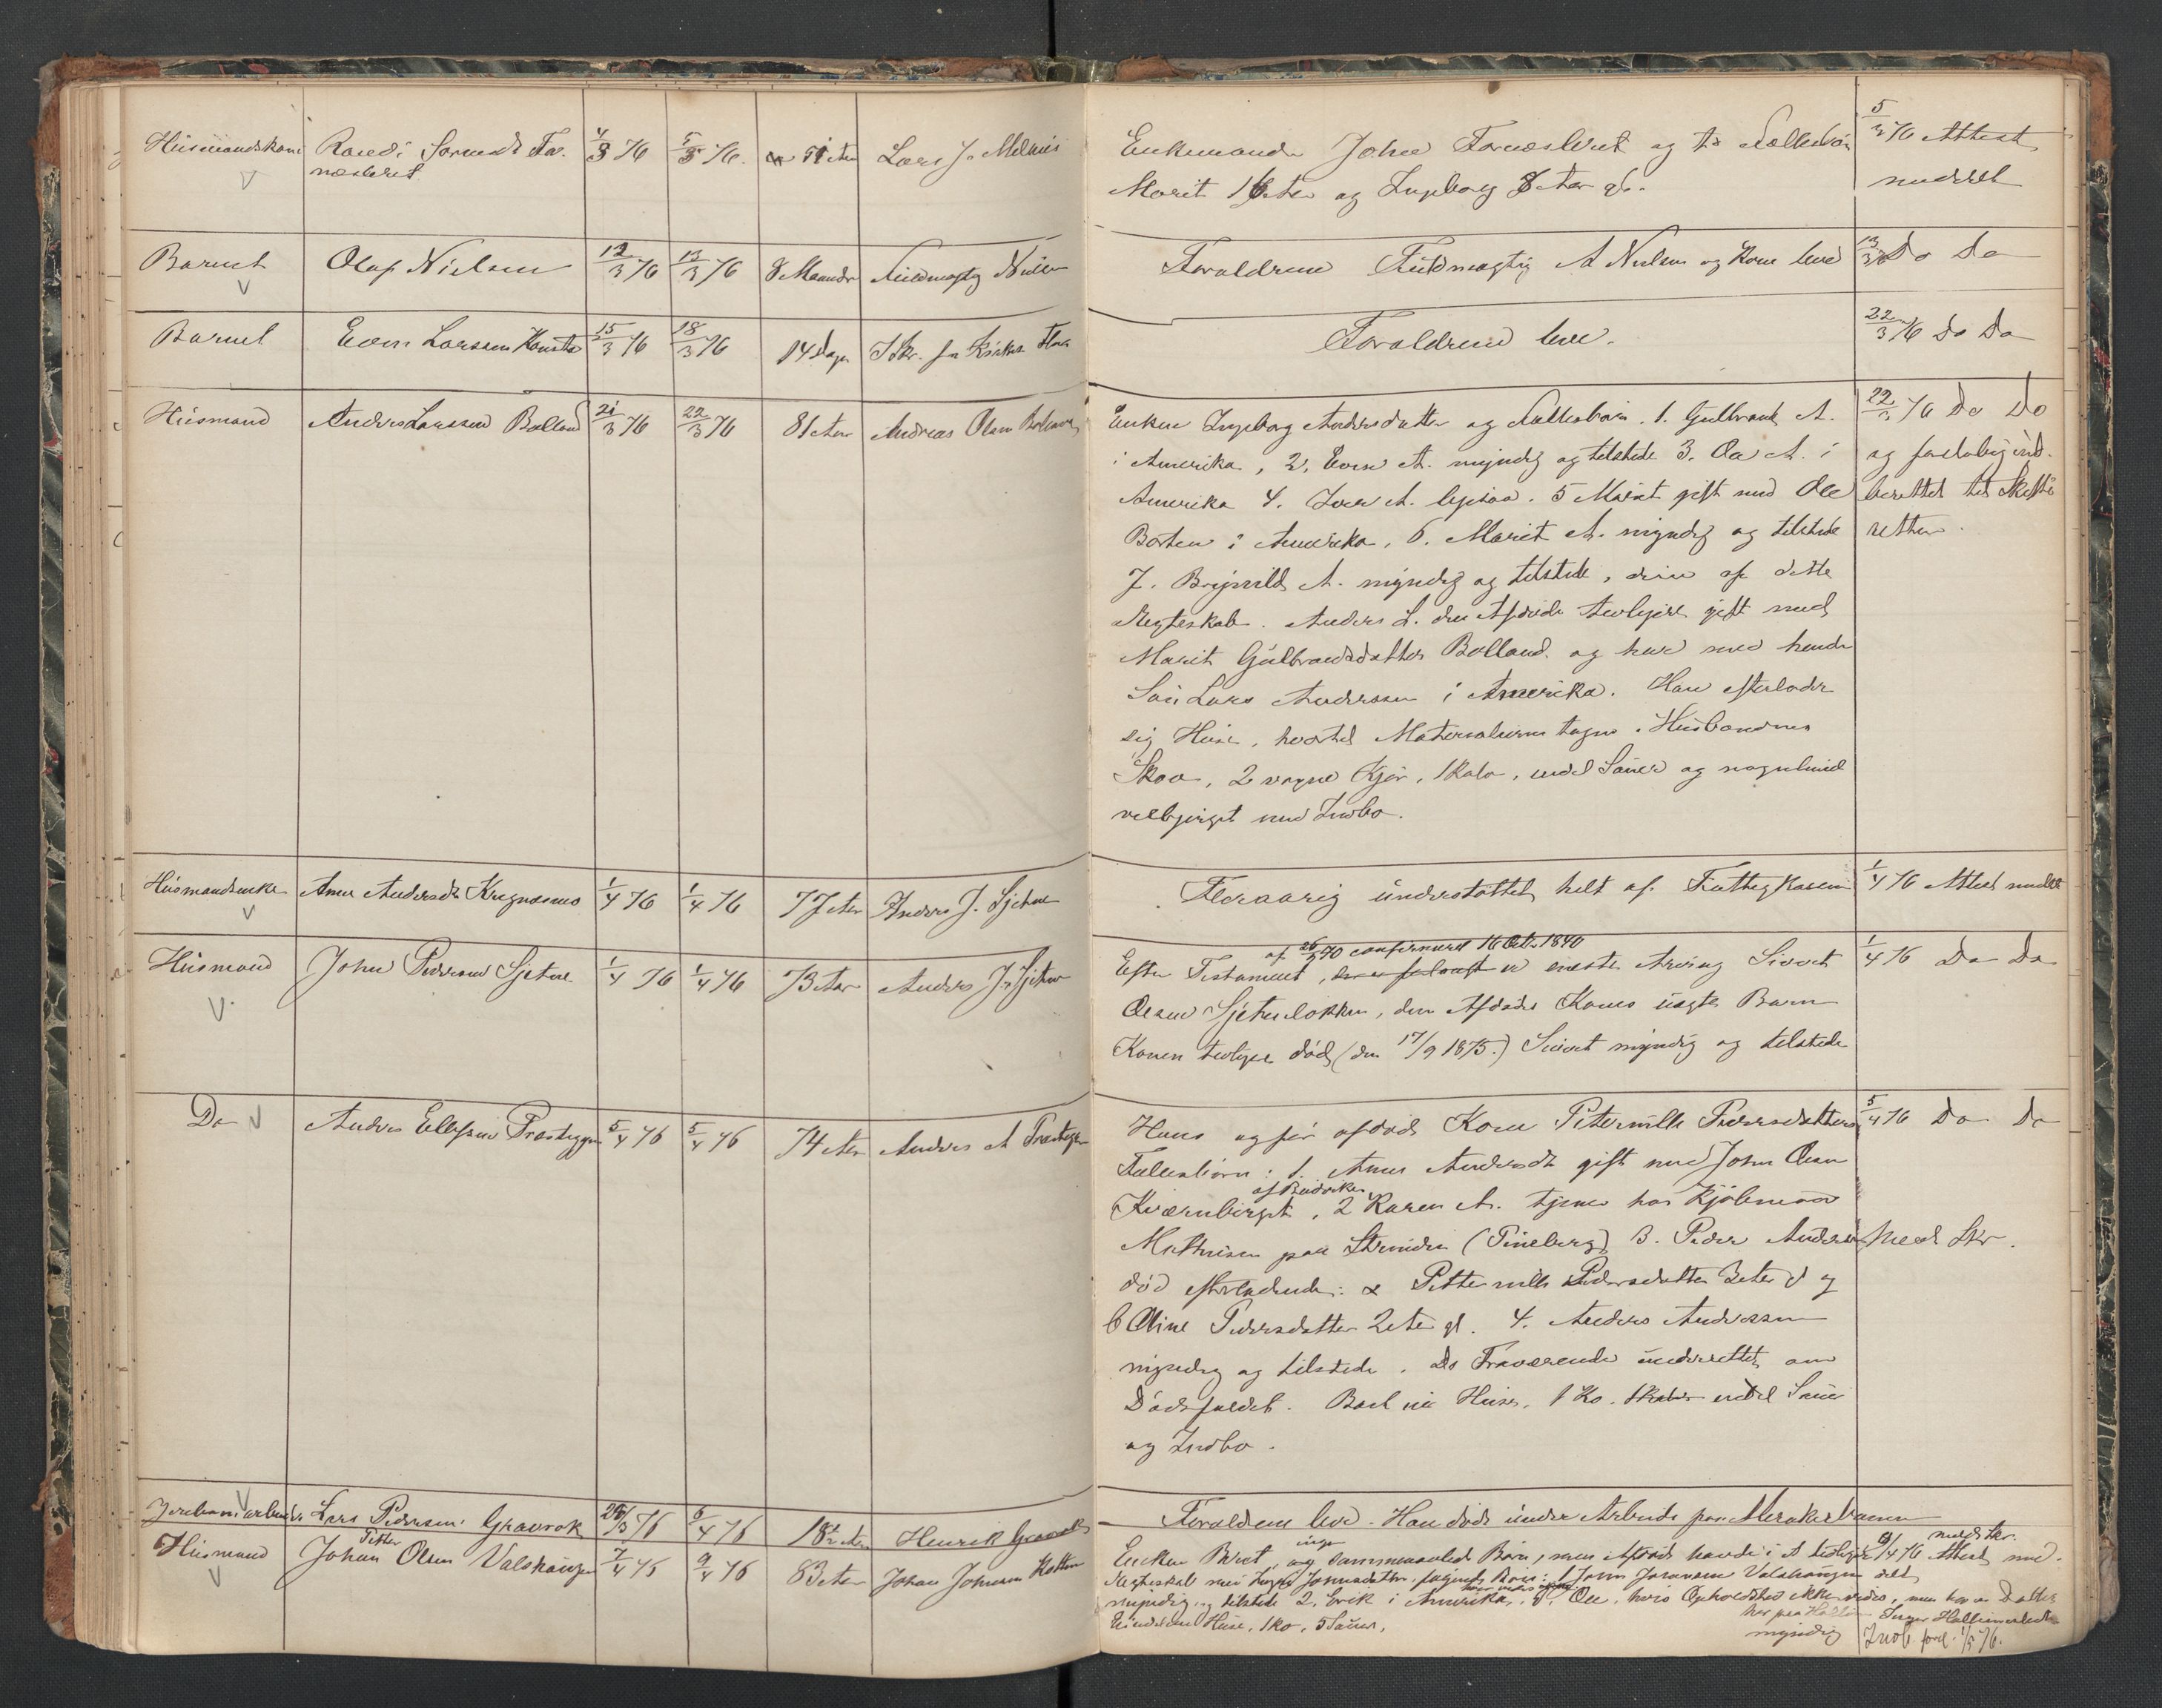 Husmandskone Randi Larsdt For- 4/3 76 5/3 76. 51 Aar Lars J. Melhuus
næsteret
Enkemand John Fornæsteret og to Fællesbørn 5/3 76 Attest
Marit 16 Aar og Ingeborg 8 Aar gl. meddelt
Barnet Olaf Nielsen 12/3 76 13/3 76 8 Maander Fuldmægtig Nielsen
Forældrene Fuldmægtig A Nielsen og Kone leve 13/3 76 Do Do
Barnet Even Larssen 15/3 76 18/3 76 14 Dage
Forældrene leve. 22/3 76 Do Do
Husmand Anders Larssen Bolland 21/3 76 22/3 76 81 Aar Andreas Olsen
Enken Ingeborg Andersdatter og Fællesbørn. 1. Gulbrand A. 22/3 76 Do Do
i Amerika, 2. Even A. myndig og tilstede 3. Ole A. i og foreløbig ind-
Amerika 4. Iver A. ligesaa. 5 Marit gift med Ole berettet til Skifte-
Borten i Amerika, 6. Marit A. myndig og tilstede retten.
7. Brynild A. myndig og tilstede, disse af dette
Ægteskab. Anders L. den Afdøde tidligere gift med
Marit Gulbrandsdatter Bolland og har med hende
Søn Lars Anderssen i Amerika. Han efterlader
sig Huse, hvortil Materialierne tagne i Husbondens
Skov, 2 Kjør, 1 Kalv, endel Sauer og nogenlunde
velbjerget med Indbo.
Husmandsenke Anne Andersdt Kregnæsmo 1/4 76 1/4 76 77 Aar Anders J. Gjetne
Fleraarig understøttet helt af Fattigkassen 1/4 76 Attest meddelt
Husmand John Pedersen Gjetne 1/4 76 1/4 76 73 Aar Anders J. Gjetne
af 26/5 70 confirmeret 16 Octr. 1870
Efter Testament, er eneste Arving Sivert 1/4 76 Do Do
Olsen Gjetneløkken, den Afdødes Kones uægte Barn
Konen tidligere død (den 17/9 1875.) Sivert myndig og tilstede
Do Anders Ellefsen Præstegg 5/4 76 5/4 76 74 Aar Anders A Præstegg
Hans og før afdøde Kone Peternille Pedersdatters 5/4 76 Do Do
Fællesbørn: 1. Anne Andersdt gift med John Olsen
af Budviken
Kværnberget, 2 Karen A. tjener hos Kjøbmand
Mathisen paa Strinden (Pineberg) 3. Peder Andersen Medd Skr.
død efterladende: a Petternille Pedersdatter 3 Aar gl og
b Oline Pedersdatter 2 Aar gl. 4. Anders Anderssen
myndig og tilstede. De Fraværende underrettet om
Dødsfaldet. Boet eier Huse, 1 Ko, 1 Kalv endel Sauer
og Indbo.
Jernbanearbeider Lars Pedersen Gravrok 29/3 76 6/4 76 18½ Aar Henrik Gravrok
Forældrene leve. Han døde under Arbeide paa Merakerbanen
Petter
Husmand Johan Olsen Valshaugen 7/4 76 9/4 76 83 Aar Johan Johnsen
ingen
Enken Beret, sammenavlede Børn, men Afdøde havde i et tidligere 9/4 76 Attest med-
Ægteskab med følgende Børn: 1 John Johansen Valshaugen delt
myndig og tilstede 2. Erik i Amerika, 3. Ole, hvis Opholdssted ikke vides, men har en Datter
Eiendelene Huse, 1 Ko, 5 Sauer,
myndig Indb. forel. 1/5 76.